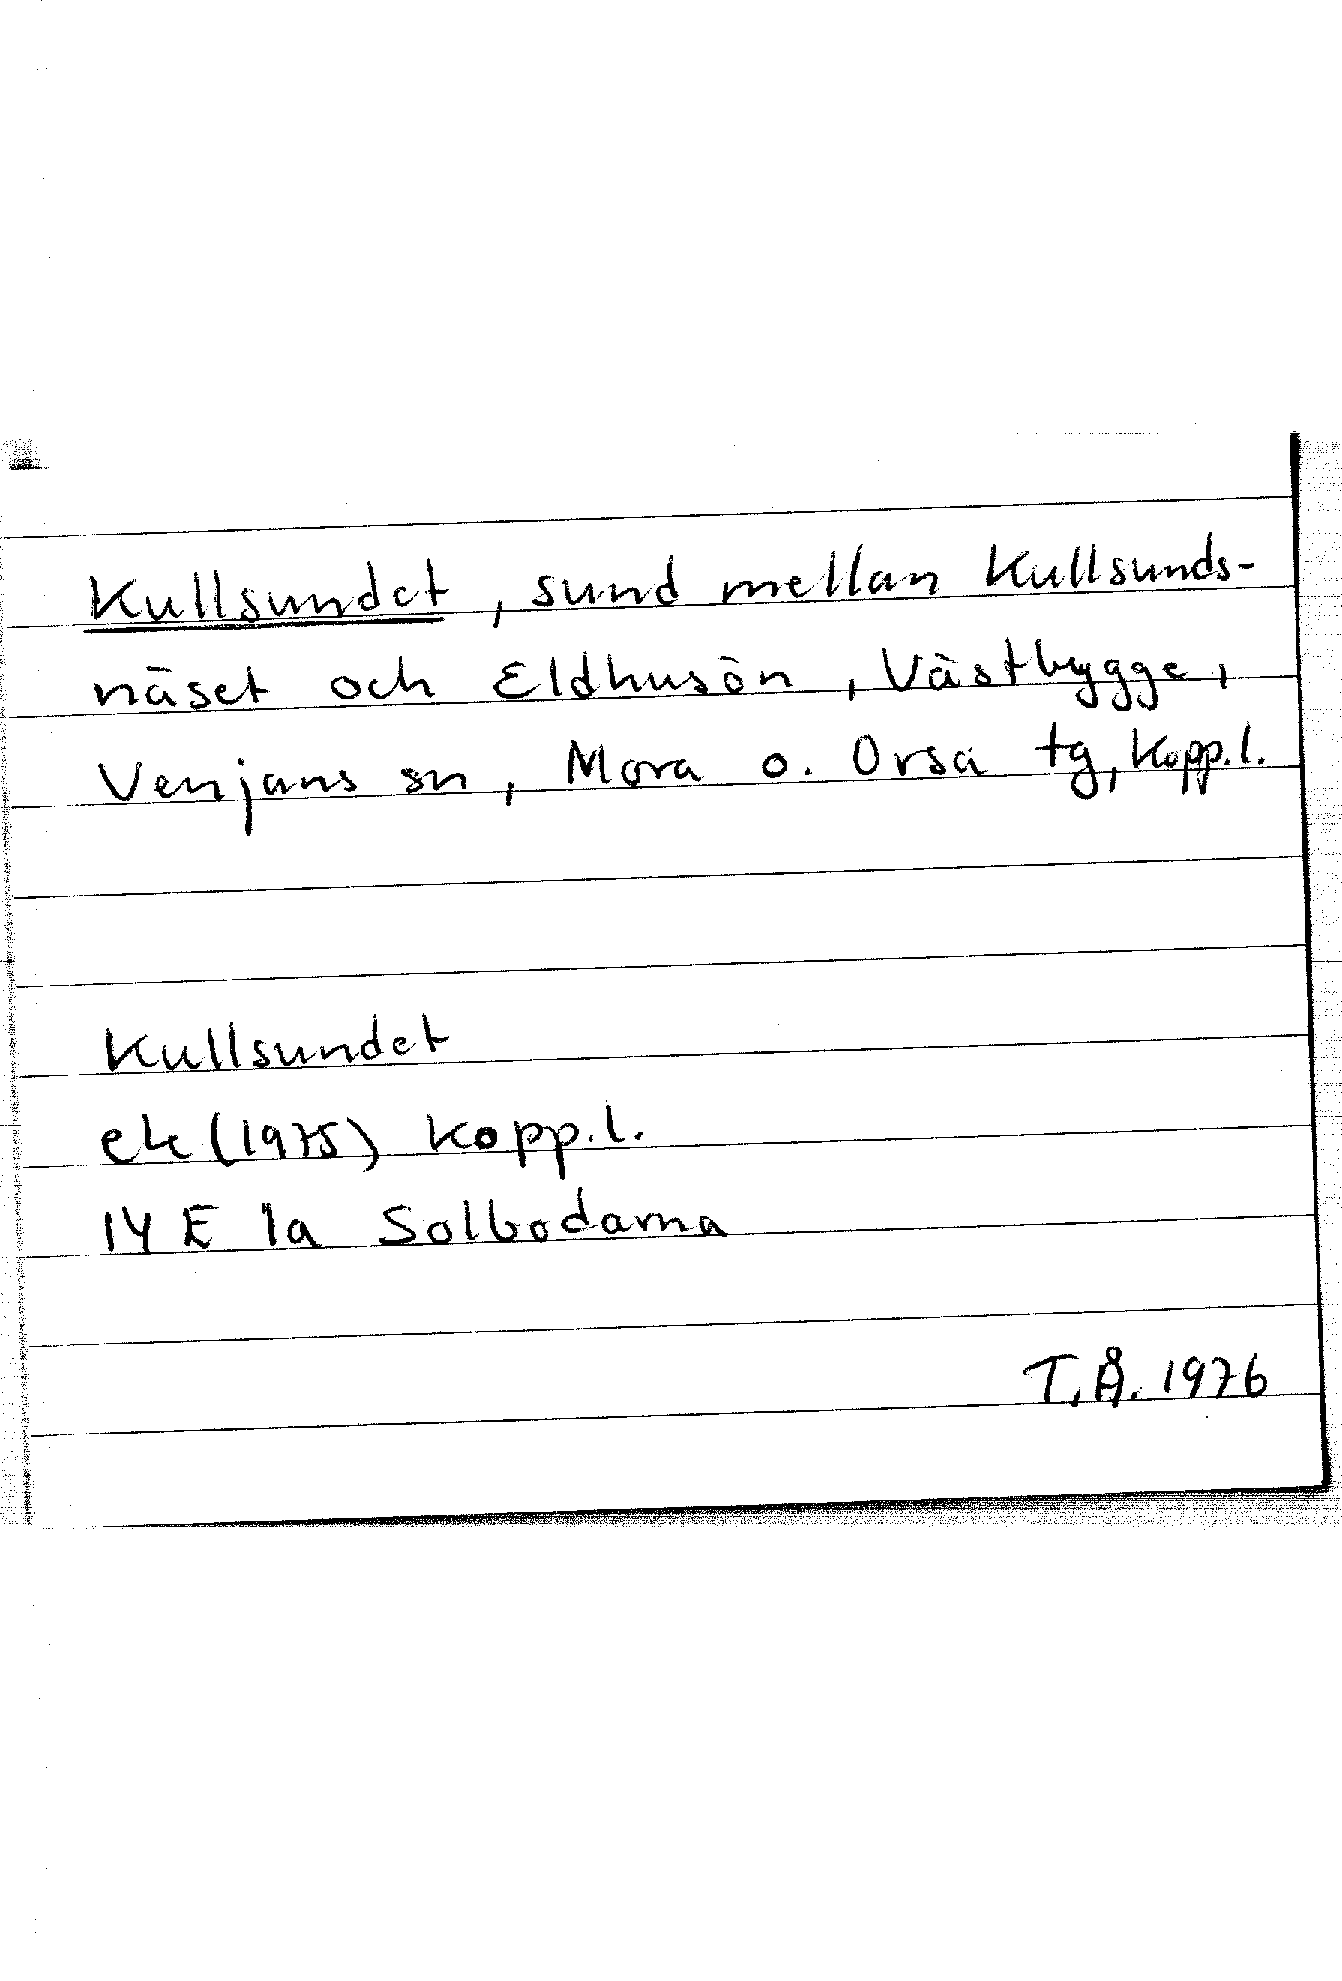 Kullsundet, sund mellan Kullsunds-
näset och Eldhusön, Västbygge,
Venjans sn, Mora o. Orsa tg, Kopp.l.
Kullsundet
ek (1975) Kopp.l.
14 E 1a Solbodarna
T.Å. 1976